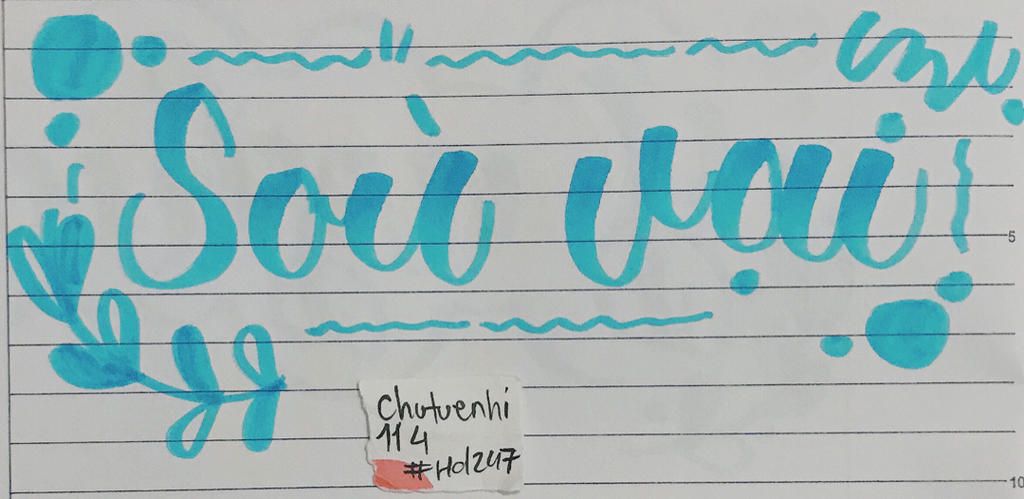 Soù vai
5
chutuenhi
114
#Hd247
10